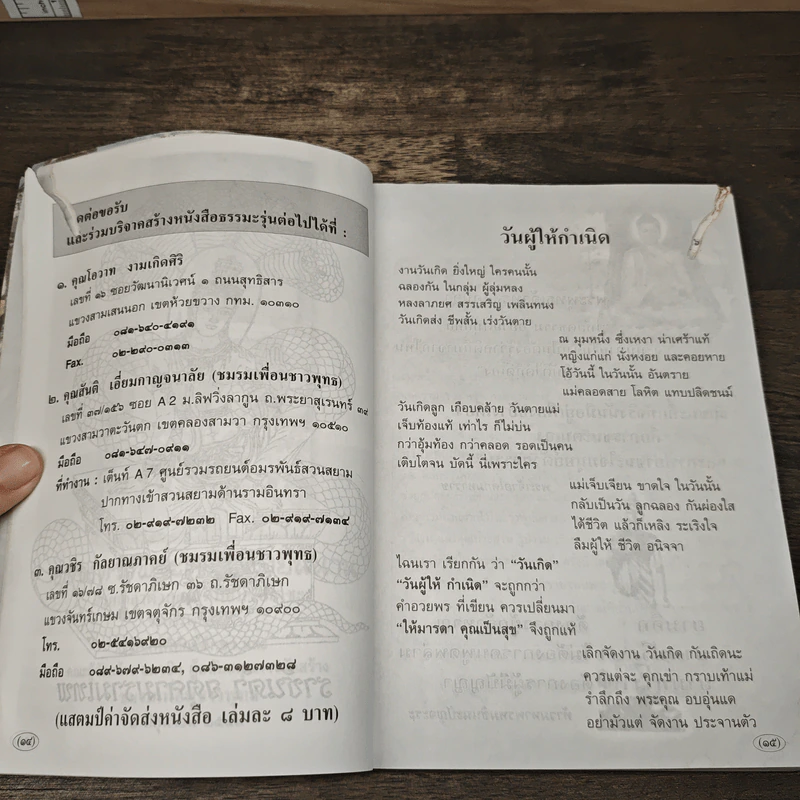 ติดต่อขอรับ
และร่วมบริจาคสร้างหนังสือธรรมะรุ่นต่อไปได้ที่ :
๑. คุณโอวาท งามเกิดศิริ
เลขที่ ๑๖ ซอยวัฒนานิเวศน์ ๑ ถนนสุทธิสาร
แขวงสามเสนนอก เขตห้วยขวาง กทม. ๑๐๓๑๐
มือถือ ๐๘๑-๖๔๐-๔๑๙๑
Fax. ๐๒-๒๙๐-๐๓๑๓
๒. คุณสันติ เอี่ยมกาญจนาลัย (ชมรมเพื่อนชาวพุทธ)
เลขที่ ๓๗/๑๕๖ ซอย A 2 ม.ลิฟวิ่งลากูน ถ.พระยาสุเรนทร์ ๓๙
แขวงสามวาตะวันตก เขตคลองสามวา กรุงเทพฯ ๑๐๕๑๐
มือถือ ๐๘๑-๖๔๗-๐๙๑๑
ที่ทำงาน : เต็นท์ A 7 ศูนย์รวมรถยนต์อมรพันธ์สวนสยาม
ปากทางเข้าสวนสยามด้านรามอินทรา
โทร. ๐๒-๙๑๙-๗๒๓๒ Fax. ๐๒-๙๑๙-๗๑๓๔
๓. คุณวชิร กัลยาณภาคย์ (ชมรมเพื่อนชาวพุทธ)
เลขที่ ๑๖/๗๘ ซ.รัชดาภิเษก ๓๖ ถ.รัชดาภิเษก
แขวงจันทร์เกษม เขตจตุจักร กรุงเทพฯ ๑๐๙๐๐
โทร. ๐๒-๕๔๑๖๙๒๐
มือถือ ๐๘๙-๖๗๙-๖๒๓๔, ๐๘๖-๓๑๒๗๓๒๘
(แสตมป์ค่าจัดส่งหนังสือ เล่มละ ๘ บาท)
(๑๔)
วันผู้ให้กำเนิด
งานวันเกิด ยิ่งใหญ่ ใครคนนั้น
ฉลองกัน ในกลุ่ม ผู้ลุ่มหลง
หลงลาภยศ สรรเสริญ เพลินทนง
วันเกิดส่ง ชีพสั้น เร่งวันตาย
ณ มุมหนึ่ง ซึ่งเหงา น่าเศร้าแท้
หญิงแก่แก่ นั่งหงอย และคอยหาย
โอ้วันนี้ ในวันนั้น อันตราย
แม่คลอดสาย โลหิต แทบปลิดชนม์
วันเกิดลูก เกือบคล้าย วันตายแม่
เจ็บท้องแท้ เท่าไร ก็ไม่บ่น
กว่าอุ้มท้อง กว่าคลอด รอดเป็นคน
เติบโตจน บัดนี้ นี่เพราะใคร
แม่เจ็บเจียน ขาดใจ ในวันนั้น
กลับเป็นวัน ลูกฉลอง กันผ่องใส
ได้ชีวิต แล้วก็เหลิง ระเริงใจ
ลืมผู้ให้ ชีวิต อนิจจา
ไฉนเรา เรียกกัน ว่า “วันเกิด”
“วันผู้ให้ กำเนิด” จะถูกกว่า
คำอวยพร ที่เขียน ควรเปลี่ยนมา
“ให้มารดา คุณเป็นสุข” จึงถูกแท้
เลิกจัดงาน วันเกิด กันเถิดนะ
ควรแต่จะ คุกเข่า กราบเท้าแม่
รำลึกถึง พระคุณ อบอุ่นแด
อย่ามัวแต่ จัดงาน ประจานตัว
(๑๕)